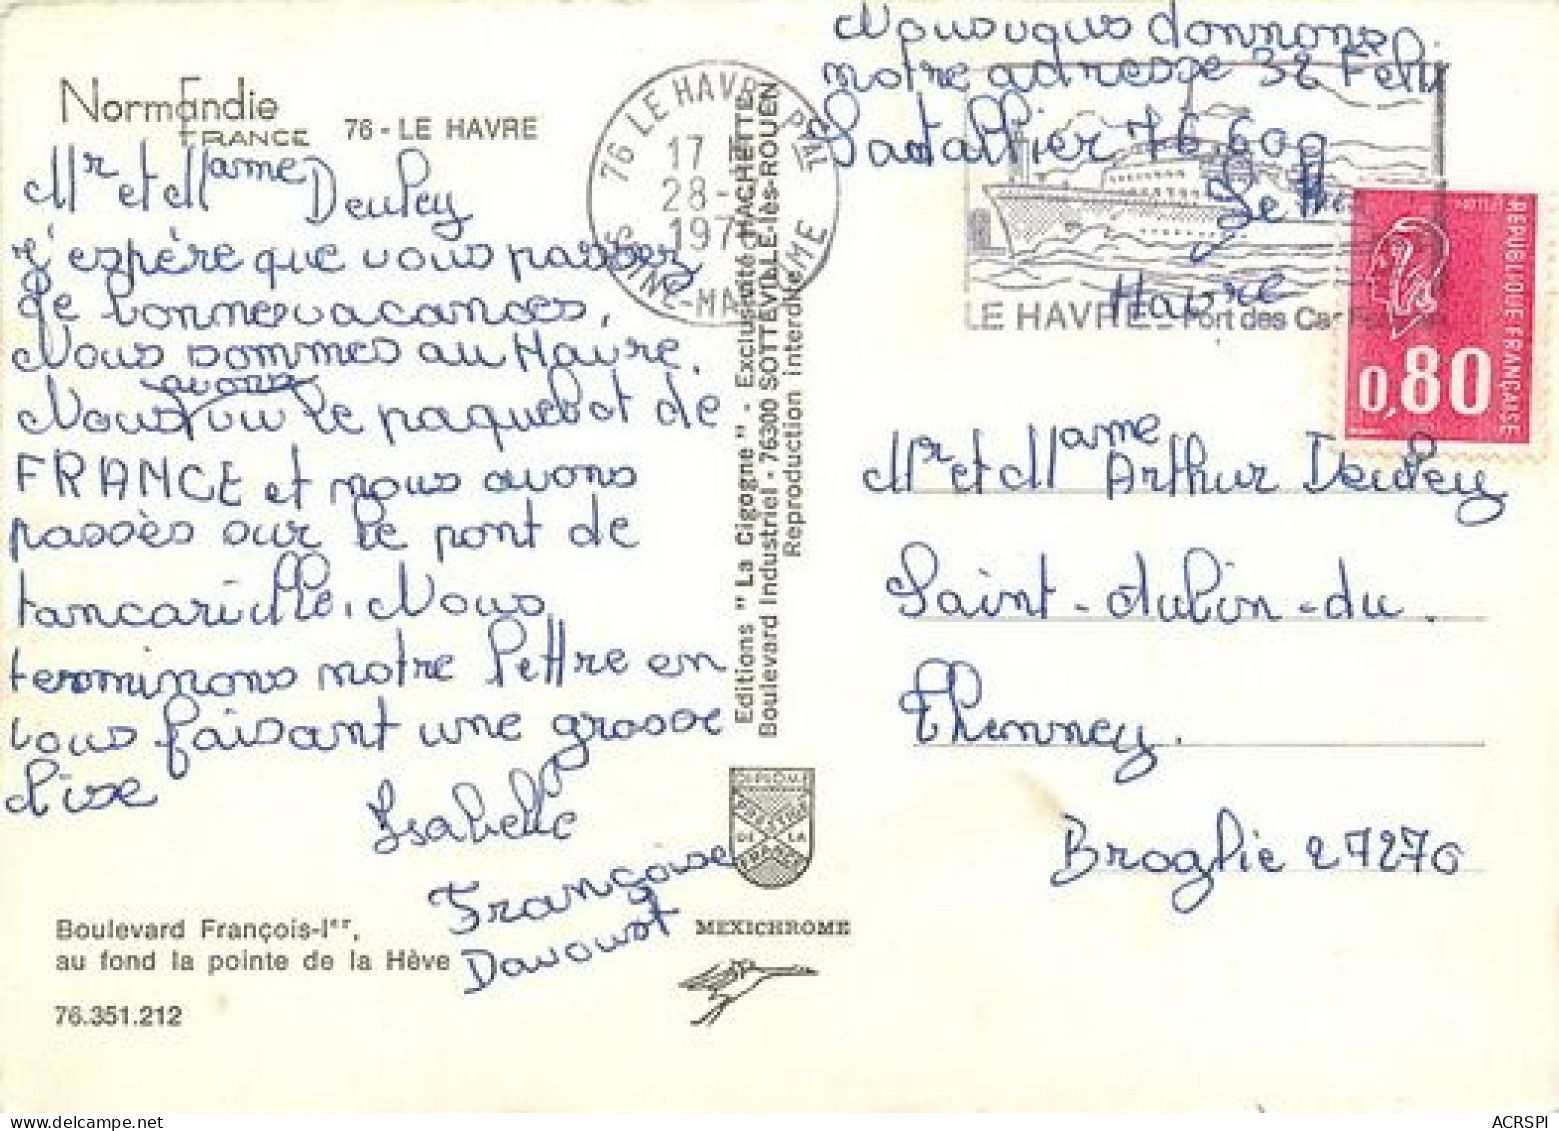 Normandie
FRANCE
76 - LE HAVRE
Mr et Mame Deuley
J'espère que vous passez
de bonne vacances.
Nous sommes au Havre.
avons
Nous vu le paquebot de
FRANCE et nous avons
passès sur le pont de
tancarville. Nous
terminons notre lettre en
vous faisant une grosse
bise
Isabelle
Françoise
Davoust
Boulevard François-Ier,
au fond la pointe de la Hève
76.351.212
76 LE HAVRE PPAL
17
28-
197
SEINE-MARITIME
Editions "La Cigogne" - Exclusivité HACHETTE
Boulevard Industriel - 76300 SOTTEVILLE-lès-ROUEN
Reproduction interdite
DIPLOME
PRESTIGE
DE LA
FRANCE
MEXICHROME
Nous vous donnons
notre adresse 32 Feli
Santallier 76.600
Le
Havre
LE HAVRE - Port des Car
REPUBLIQUE FRANÇAISE
0,80
Mr et Mame Arthur Deuley
Saint-Aubin-du.
Thenney.
Broglie 27270
ACRSPI